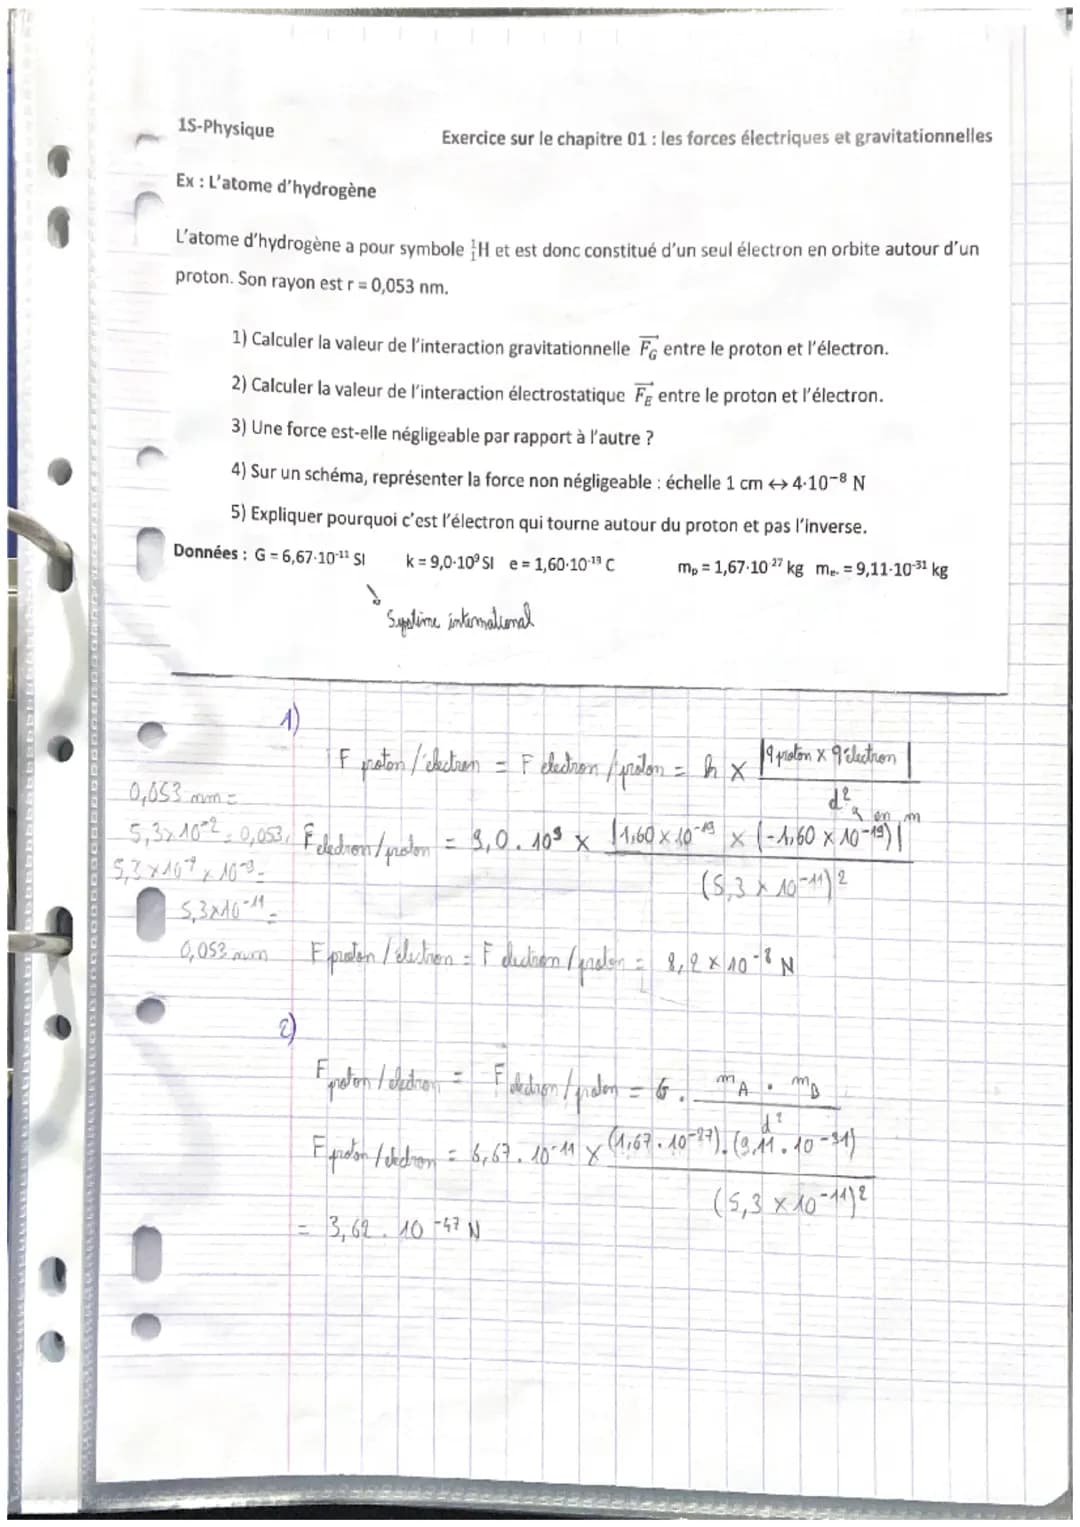 1S-Physique
Exercice sur le chapitre 01 : les forces électriques et gravitationnelles
Ex : L'atome d'hydrogène
L'atome d'hydrogène a pour symbole ¹₁H et est donc constitué d'un seul électron en orbite autour d'un
proton. Son rayon est r = 0,053 nm.
1) Calculer la valeur de l'interaction gravitationnelle F_G entre le proton et l'électron.
2) Calculer la valeur de l'interaction électrostatique F_E entre le proton et l'électron.
3) Une force est-elle négligeable par rapport à l'autre ?
4) Sur un schéma, représenter la force non négligeable : échelle 1 cm ↔ 4·10⁻⁸ N
5) Expliquer pourquoi c'est l'électron qui tourne autour du proton et pas l'inverse.
Données : G = 6,67·10⁻¹¹ SI k = 9,0·10⁹ SI e = 1,60·10⁻¹⁹ C mₚ = 1,67·10⁻²⁷ kg mₑ₋ = 9,11·10⁻³¹ kg
Système international
1)
F proton/électron = F électron/proton = k × |q proton × q électron| / d²
en m
0,053 nm =
5,3×10⁻² = 0,053
F électron/proton = 9,0 . 10⁹ × |1,60 × 10⁻¹⁹ × (-1,60 × 10⁻¹⁹)| / (5,3 × 10⁻¹¹)²
5,3×10⁻¹¹ =
0,053 nm
F proton/électron = F électron/proton = 8,2 × 10⁻⁸ N
2)
F proton/électron = F électron/proton = G . m_A . m_B / d²
F proton/électron = 6,67 . 10⁻¹¹ × (1,67 . 10⁻²⁷) . (9,11 . 10⁻³¹) / (5,3 × 10⁻¹¹)²
= 3,62 . 10⁻⁴⁷ N